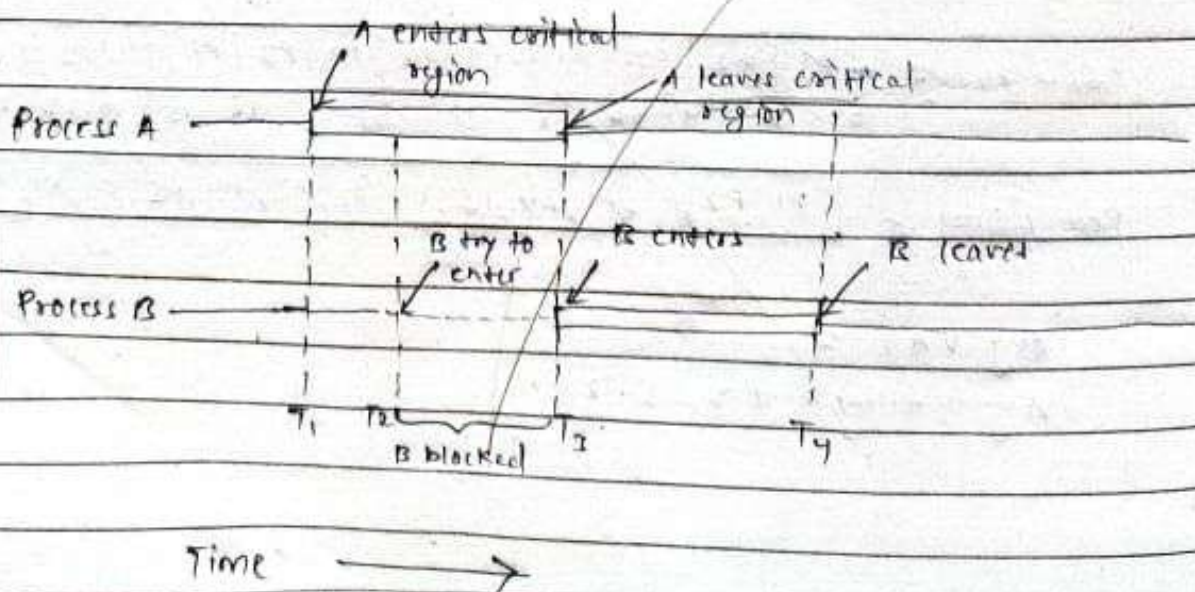 A enters critical
region
A leaves critical
region
Process A
B try to
enter
B enters
B leaves
Process B
T1 T2 T3 T4
B blocked
Time